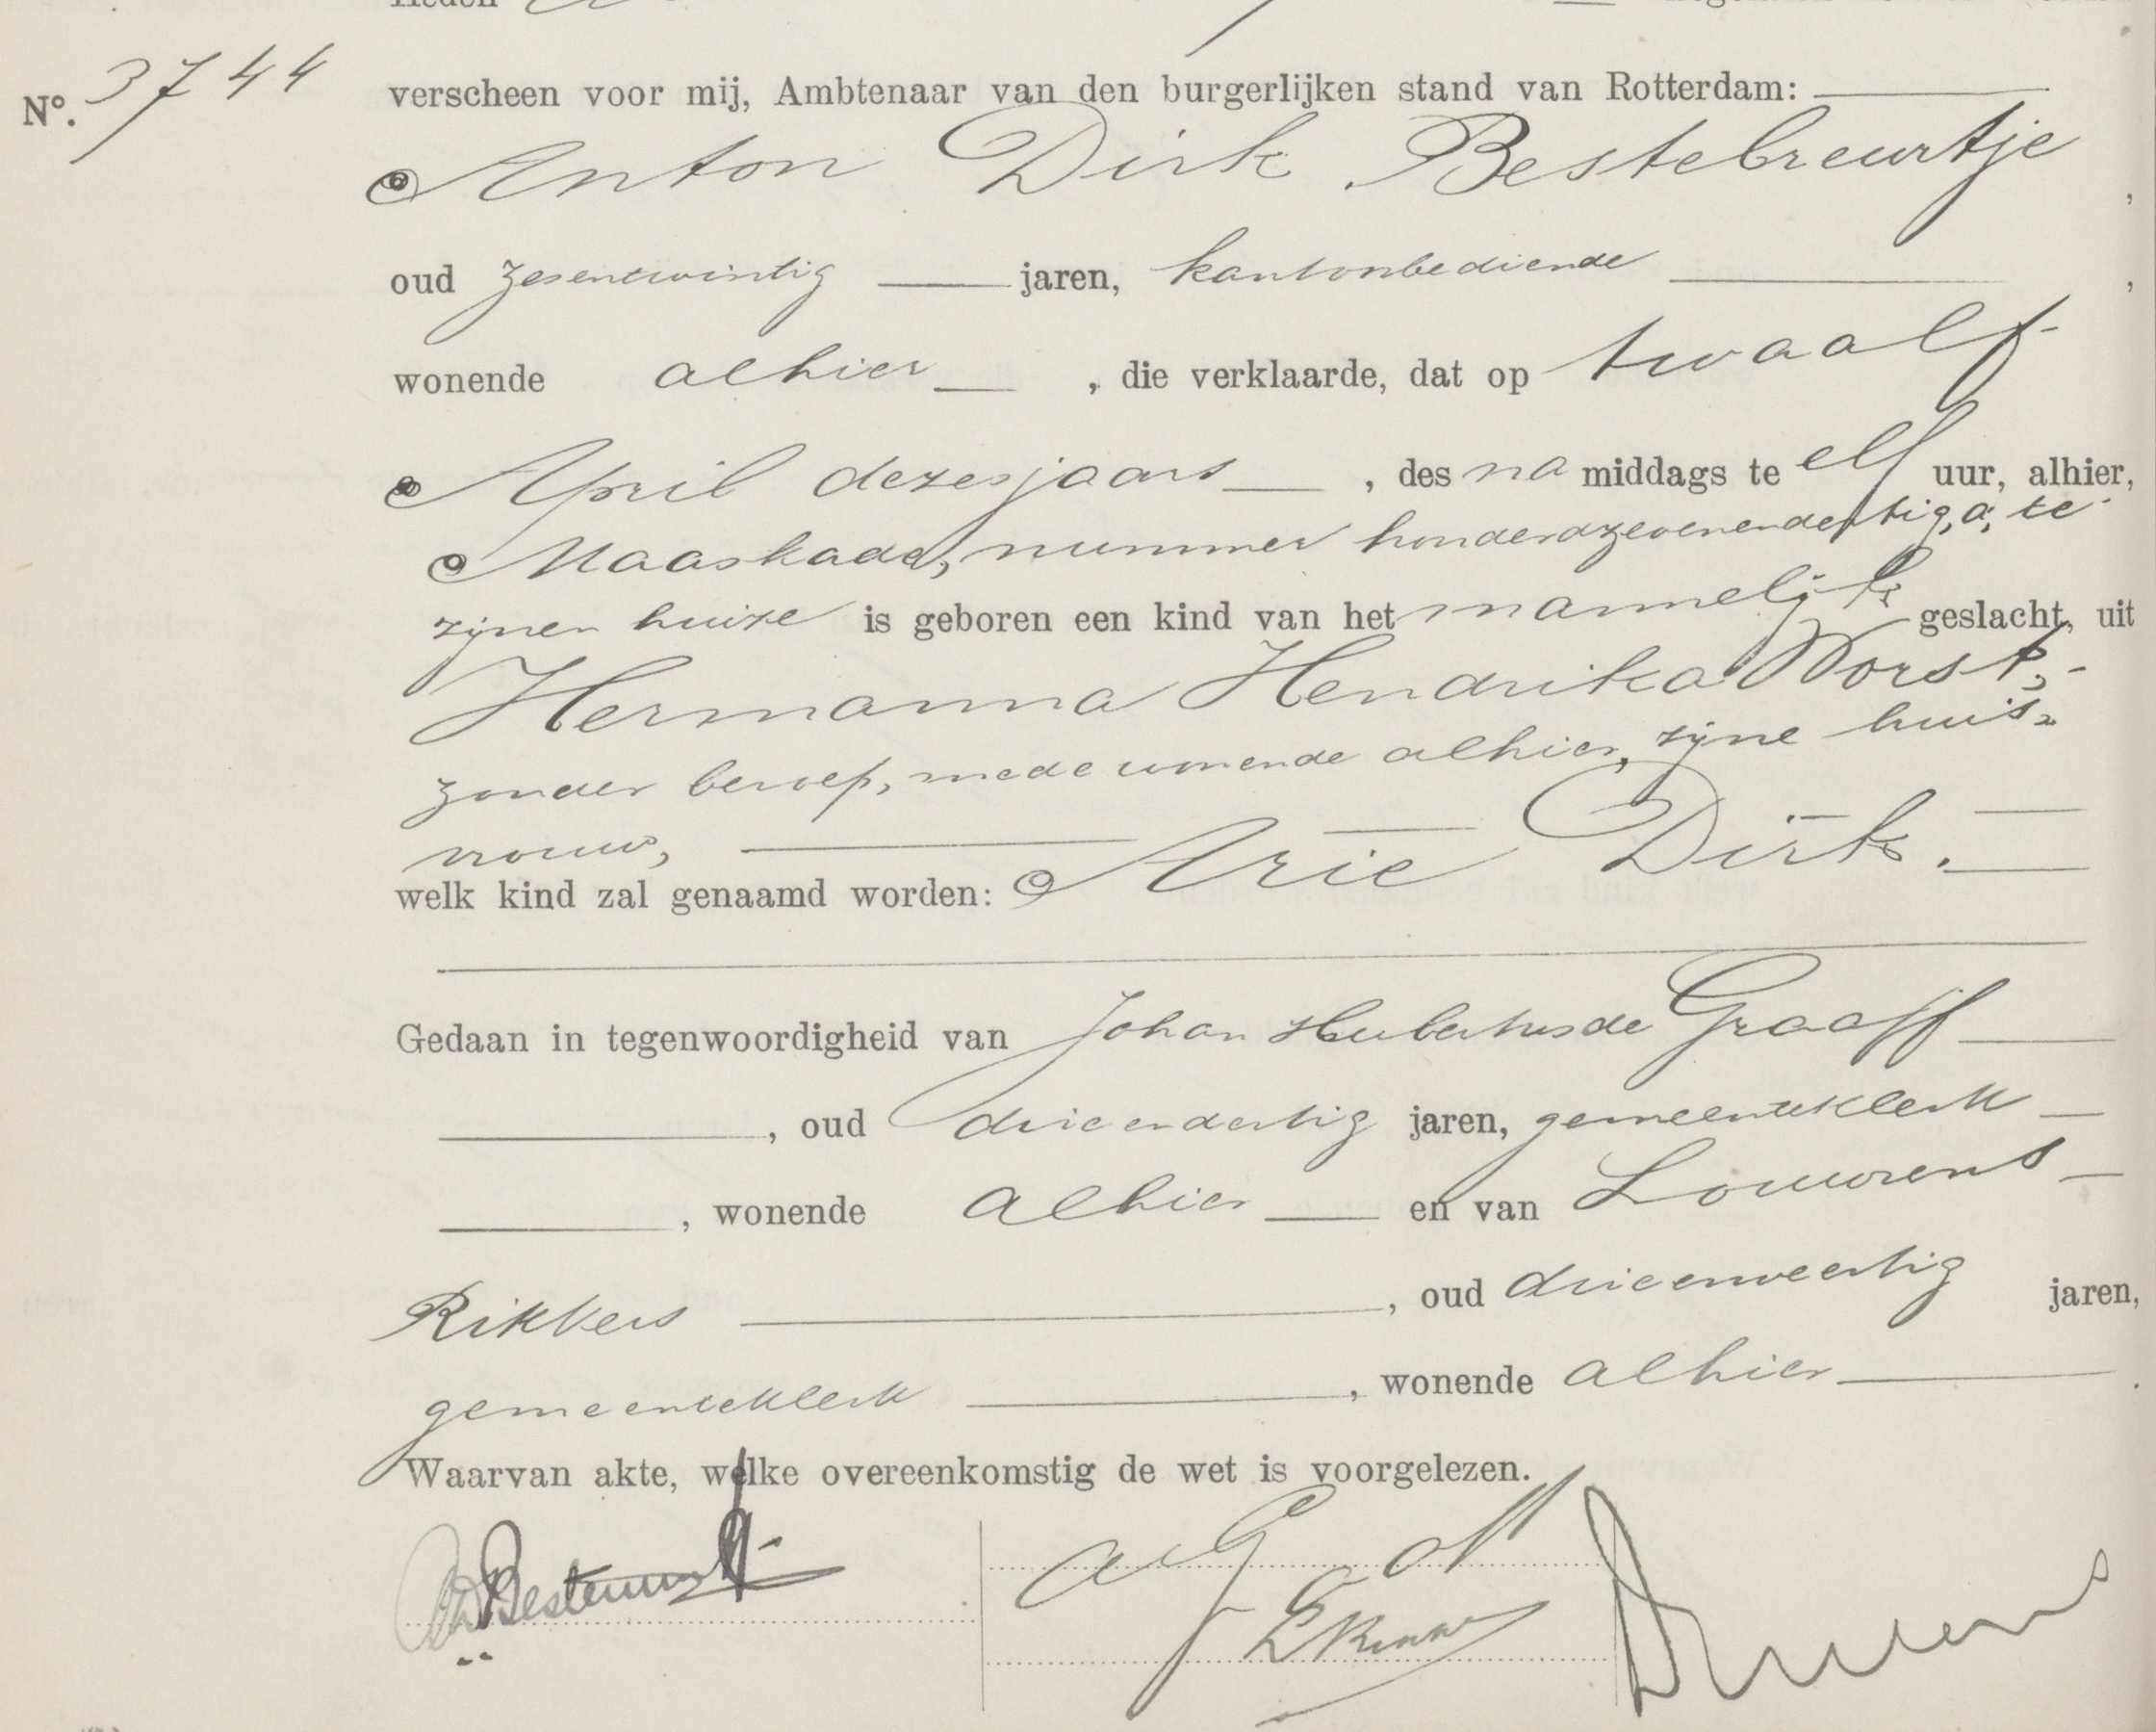 Heden
No. 3744
verscheen voor mij, Ambtenaar van den burgerlijken stand van Rotterdam:
Anton Dirk Bestebreurtje,
oud zesentwintig jaren, kantoorbediende,
wonende alhier, die verklaarde, dat op twaalf
April dezes jaars, des na middags te elf uur, alhier,
Maaskade, nummer honderdzevenendertig, a, te
zijnen huize is geboren een kind van het mannelijk geslacht, uit
Hermanna Hendrika Vorst,
zonder beroep, mede wonende alhier, zijne huis=
vrouw,
welk kind zal genaamd worden: Arie Dirk.
Gedaan in tegenwoordigheid van Johan Hubertus de Graaff
, oud drieendertig jaren, gemeenteklerk
, wonende alhier en van Louwrens
Rikkers, oud drieenveertig jaren,
gemeenteklerk, wonende alhier.
Waarvan akte, welke overeenkomstig de wet is voorgelezen.